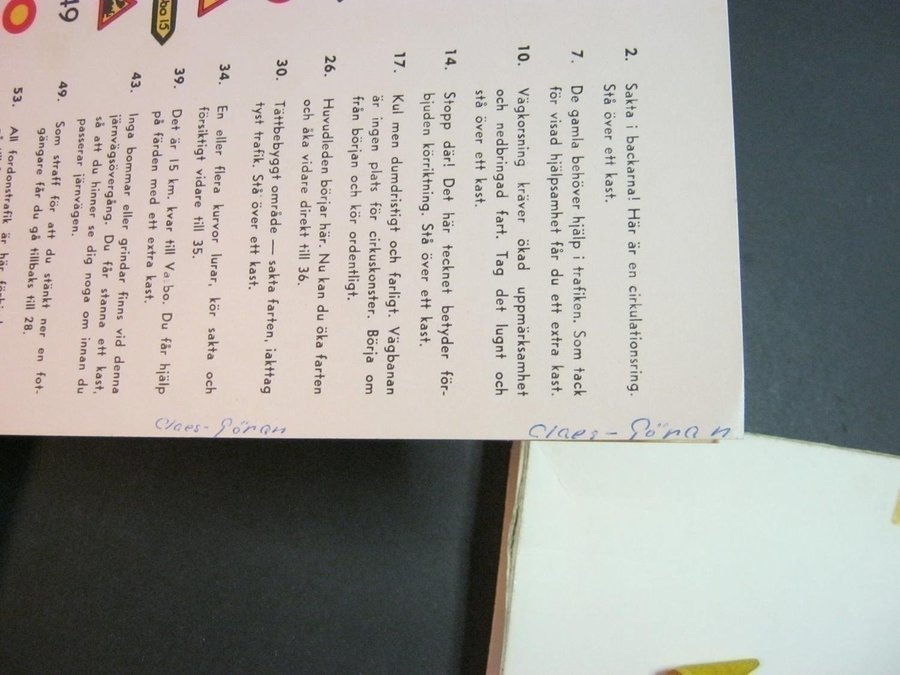 2. Sakta i backarna! Här är en cirkulationsring.
Stå över ett kast.
7. De gamla behöver hjälp i trafiken. Som tack
för visad hjälpsamhet får du ett extra kast.
10. Vägkorsning kräver ökad uppmärksamhet
och nedbringad fart. Tag det lugnt och
stå över ett kast.
14. Stopp där! Det här tecknet betyder för-
bjuden körriktning. Stå över ett kast.
17. Kul men dumdristigt och farligt. Vägbanan
är ingen plats för cirkuskonster. Börja om
från början och kör ordentligt.
26. Huvudleden börjar här. Nu kan du öka farten
och åka vidare direkt till 36.
30. Tättbebyggt område — sakta farten, iakttag
tyst trafik. Stå över ett kast.
34. En eller flera kurvor lurar, kör sakta och
försiktigt vidare till 35.
39. Det är 15 km kvar till Vabo. Du får hjälp
på färden med ett extra kast.
43. Inga bommar eller grindar finns vid denna
järnvägsövergång. Du får stanna ett kast,
så att du hinner se dig noga om innan du
passerar järnvägen.
49. Som straff för att du stänkt ner en fot-
gängare får du gå tillbaks till 28.
53. All fordonstrafik är här
bo 15
49
Claes-Göran
Claes-Göran